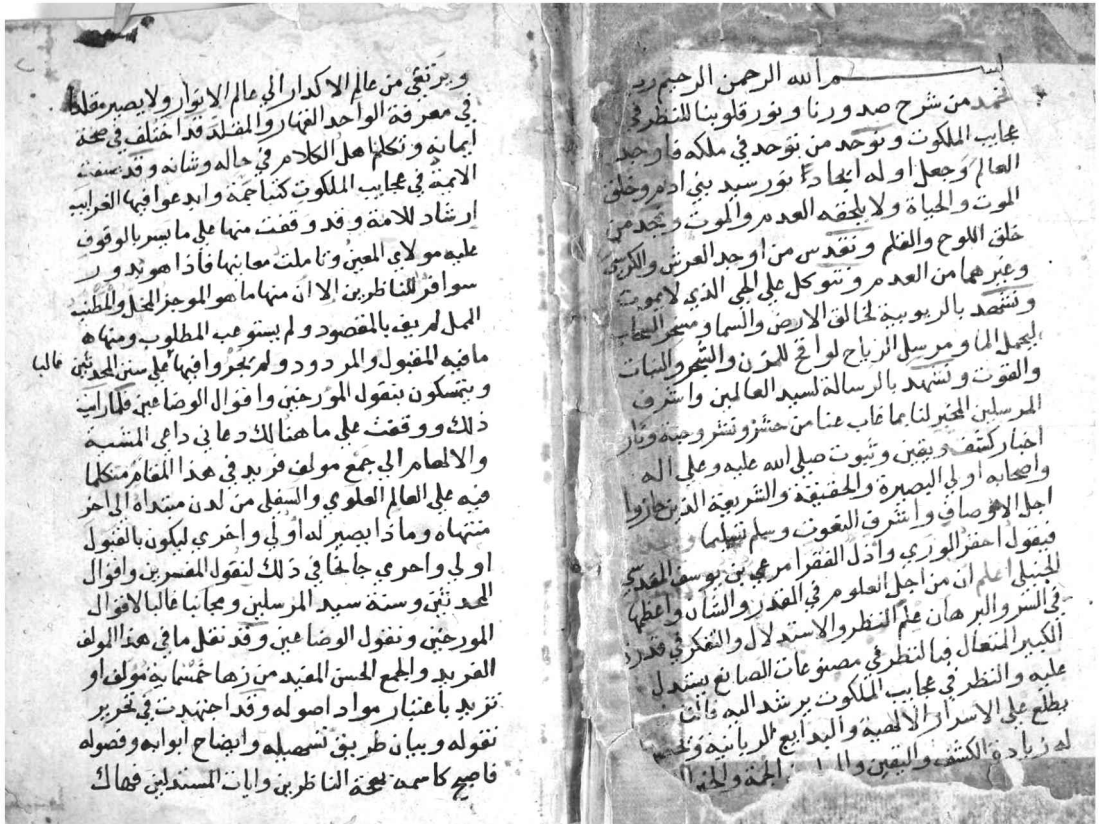 بسم الله الرحمن الرحيم رب
نحمد من شرح صدورنا ونور قلوبنا للنظر في
عجايب الملكوت ونوحد من توحد في ملكه فاوجد
العالم وجعل اوله ايجادا نور سيد بني ادم وخلق
الموت والحياة ولا يلحقه العدم والموت ونمجد من
خلق اللوح والقلم ونقدس من اوجد العرش والكرسي
وغيرهما من العدم ونتوكل على الحي الذي لا يموت
ونشهد بالربوبية لخالق الارض والسما ومسخر السحاب
ليحمل الما ومرسل الرياح لواقح للمزن والشجر والنبات
والقوت ونشهد بالرسالة لسيد العالمين واشرف
المرسلين المخبر لنا بما غاب عنا من حشر ونشر وجنة ونار
اخبار كشف ويقين وثبوت صلى الله عليه وعلى اله
واصحابه اولي البصيرة والحقيقة والشريعة الذين حازوا
اجل الاوصاف واشرف النعوت وسلم تسليما
فيقول احقر الورى واذل الفقرا مرعي بن يوسف المقدسي
الحنبلي اعلم ان من اجل العلوم في القدر والشان واعظمها
في السر والبرهان علم النظر والاستدلال والتفكر في قدرة
الكبير المتعال فبالنظر في مصنوعات الصانع يستدل
عليه والنظر في عجايب الملكوت يرشد اليه فانه
يطلع على الاسرار الالهية والبدايع الربانية
له زيادة الكشف واليقين
ويرتقي من عالم الاكدار الى عالم الانوار ولا يصير مقلدا
في معرفة الواحد القهار والمقلد قد اختلف في صحة
ايمانه وتكلم اهل الكلام في حاله وشانه وقد صنفت
الايمة في عجايب الملكوت كتبا جمة وابدعوا فيها الغرايب
ارشاد للامة وقد وقفت منها على ما تيسر بالوقوف
عليه مولاي المعين وتاملت معانيها فاذا هو بدور
سوافر للناظرين الا ان منها ما هو الموجز المخل والمطنب
الممل لم يف بالمقصود ولم يستوعب المطلوب ومنها
ما فيه المقبول والمردود ولم يجروا فيها على سنن المحدثين غالبا
ويتمسكون بنقول المؤرخين واقوال الوضاعين فلما رايت
ذلك ووقفت على ما هنالك دعاني داعي المشية
والالهام الى جمع مولف فريد في هذا المقام متكلما
فيه على العالم العلوي والسفلي من لدن مبتداه الى اخر
منتهاه وماذا يصير له اولى واخرى ليكون بالقبول
اولى واحرى جانحا في ذلك لنقول المفسرين واقوال
المحدثين وسنة سيد المرسلين ومجانبا غالبا لاقوال
المورخين ونقول الوضاعين وقد نقل ما في هذا المولف
الفريد والجمع الحسن المفيد من زها خمسماية مولف او
تزيد باعتبار مواد اصوله وقد اجتهدت في تحرير
نقوله وبيان طريق تسهيله وايضاح ابوابه وفصوله
فاصبح كاسمه بهجة الناظرين وايات المستدلين فهاك